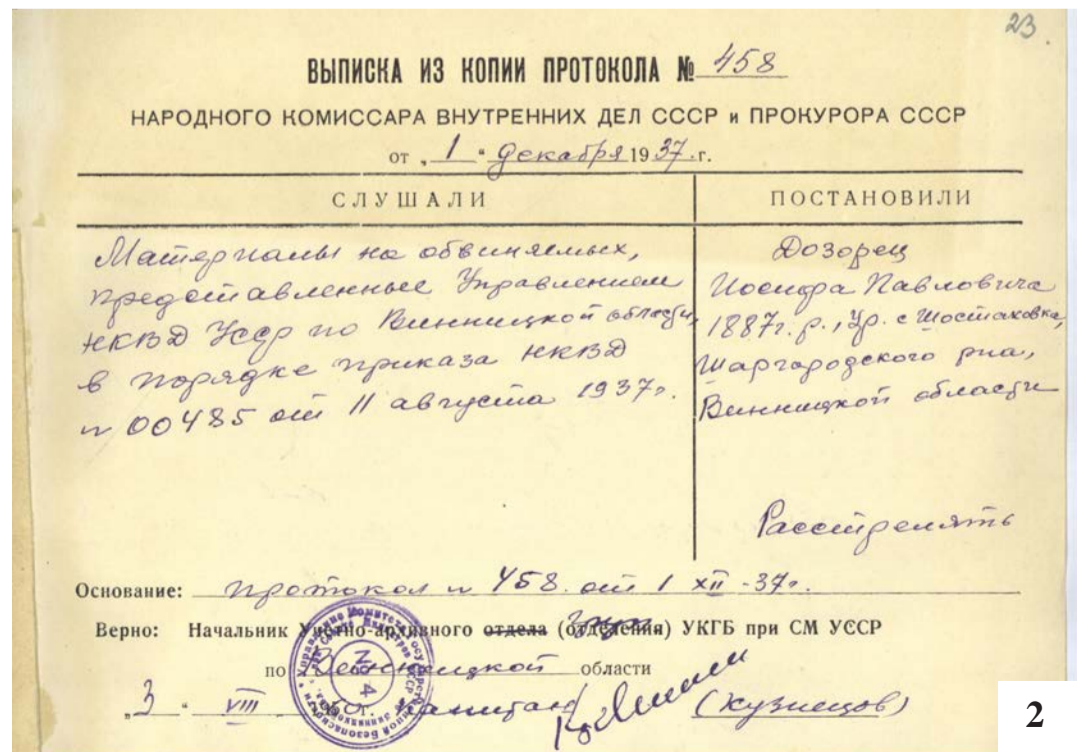 23.
ВЫПИСКА ИЗ КОПИИ ПРОТОКОЛА № 458
НАРОДНОГО КОМИССАРА ВНУТРЕННИХ ДЕЛ СССР и ПРОКУРОРА СССР
от „1“ декабря 1937.г.
СЛУШАЛИ
Материалы на обвиняемых,
представленные Управлением
НКВД УССР по Винницкой области,
в порядке приказа НКВД
№ 00485 от 11 августа 1937г.
ПОСТАНОВИЛИ
Дозорец
Иосифа Павловича
1887г. р., ур. с Шостаковка,
Шаргородского р-на,
Винницкой области
Расстрелять
Основание: протокол № 458. от 1 XII-37г.
Верно: Начальник Учетно-архивного отдела (отделения) УКГБ при СМ УССР
по Винницкой области
„3“ VIII г. капитан (Кузнецов)
2